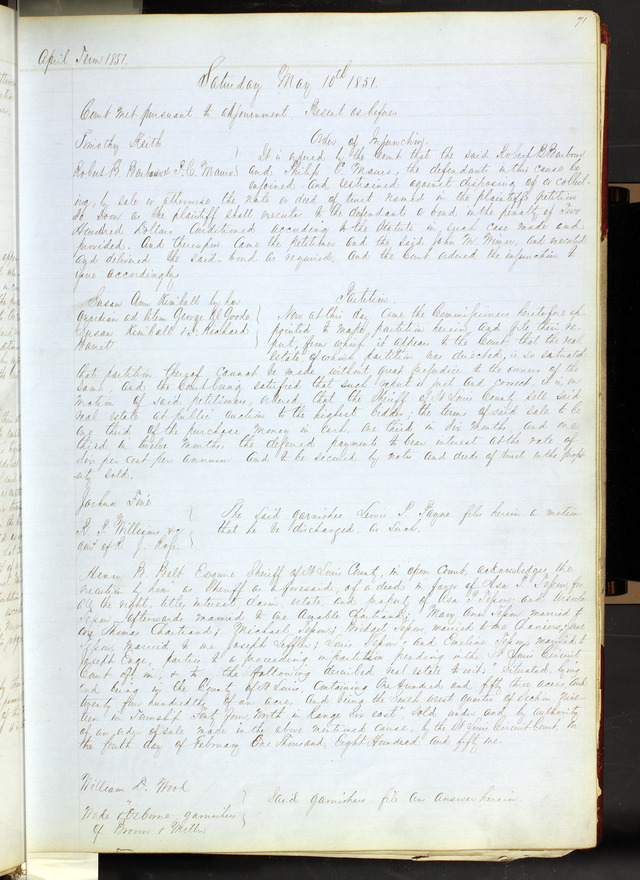 71
April Term 1851.
Saturday May 10th 1851.
Court met pursuant to adjournment. Present as before
Timothy Keith Order of Injunction.
It is ordered by the Court that the said Robert B Barbour
Robert B Barbour & P. C. Mauro and Philip C. Mauro, the defendants in this cause be
enjoined and restrained against disposing of or collect-
ing, by sale or otherwise the note or deed of trust named in the plaintiffs petition
so soon as the plaintiff shall execute to the defendants a bond in the penalty of Two
Hundred Dollars conditioned according to the Statute in such case made and
provided. And thereupon came the Petitioner and the said John M. and executed
and delivered the said bond as required, and the Court ordered the injunction to
issue accordingly
Susan Ann Kimball by her Partition.
Guardian ad litem George W. Goode Now at this day came the Commissioners heretofore ap-
Susan Kimball vs. Richard pointed to make partition herein, and file their re-
Barrett port, from which it appears to the Court that the real
estate of which partition was directed, is so situated
that partition thereof cannot be made without great prejudice to the owners of the
same, and the Court being satisfied that such report is just and correct, it is on
motion of said petitioners, ordered, that the Sheriff of St Louis County sell said
real estate at public auction to the highest bidder; the terms of said sale to be
one third of the purchase money in Cash, one third in six months, and one
third in twelve months the deferred payments to bear interest at the rate of
six per cent per annum and to be secured by notes and deeds of trust on the prop-
erty sold.
Joshua
The said garnishee Lewis S. Payne files herein a motion
R. J. Williams &c that he be discharged as such.
of R. J.
Henry B. Belt Esquire Sheriff of St Louis County, in open Court, acknowledges the
execution by him as Sheriff as aforesaid, of a deed in favor of for
all the right, title, interest, claim, estate, and property of and
afterward married to one Amable Chartrand; Mary Ann married to
one Thomas Chartrand; Michael married to one
married to one Joseph Louis and Emiline married to
Joseph parties to a proceeding in partition pending in the St Louis Circuit
Court of, in & to the following described real estate to wit; "Situated, lying
and being in the County of St Louis, Containing One Hundred and fifty three acres and
twenty four hundredths of an acre, and being the South west quarter of Section
in Township Forty four, North in Range six east" Sold under and by authority
of an order of sale made in the above mentioned cause, by the St Louis Circuit Court, on
the fourth day of February One Thousand, Eight Hundred and fifty one.
William D. Wood
Said garnishees file an answer herein
Wade & Osborne garnishees
of Brown & Miller